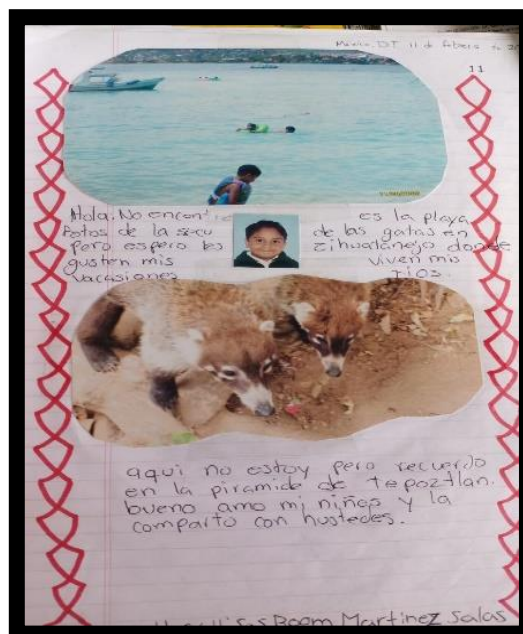 Mexico, DF 11 de febrero de 20
11
Hola. No encontre
fotos de la secu
pero espero les
gusten mis
vacasiones
es la playa
de las gatas en
zihuatanejo donde
viven mis
tios.
aqui no estoy pero recuerdo
en la piramide de Tepoztlan.
bueno amo mi niñes y la
comparto con hustedes.
Boom Martinez Salas